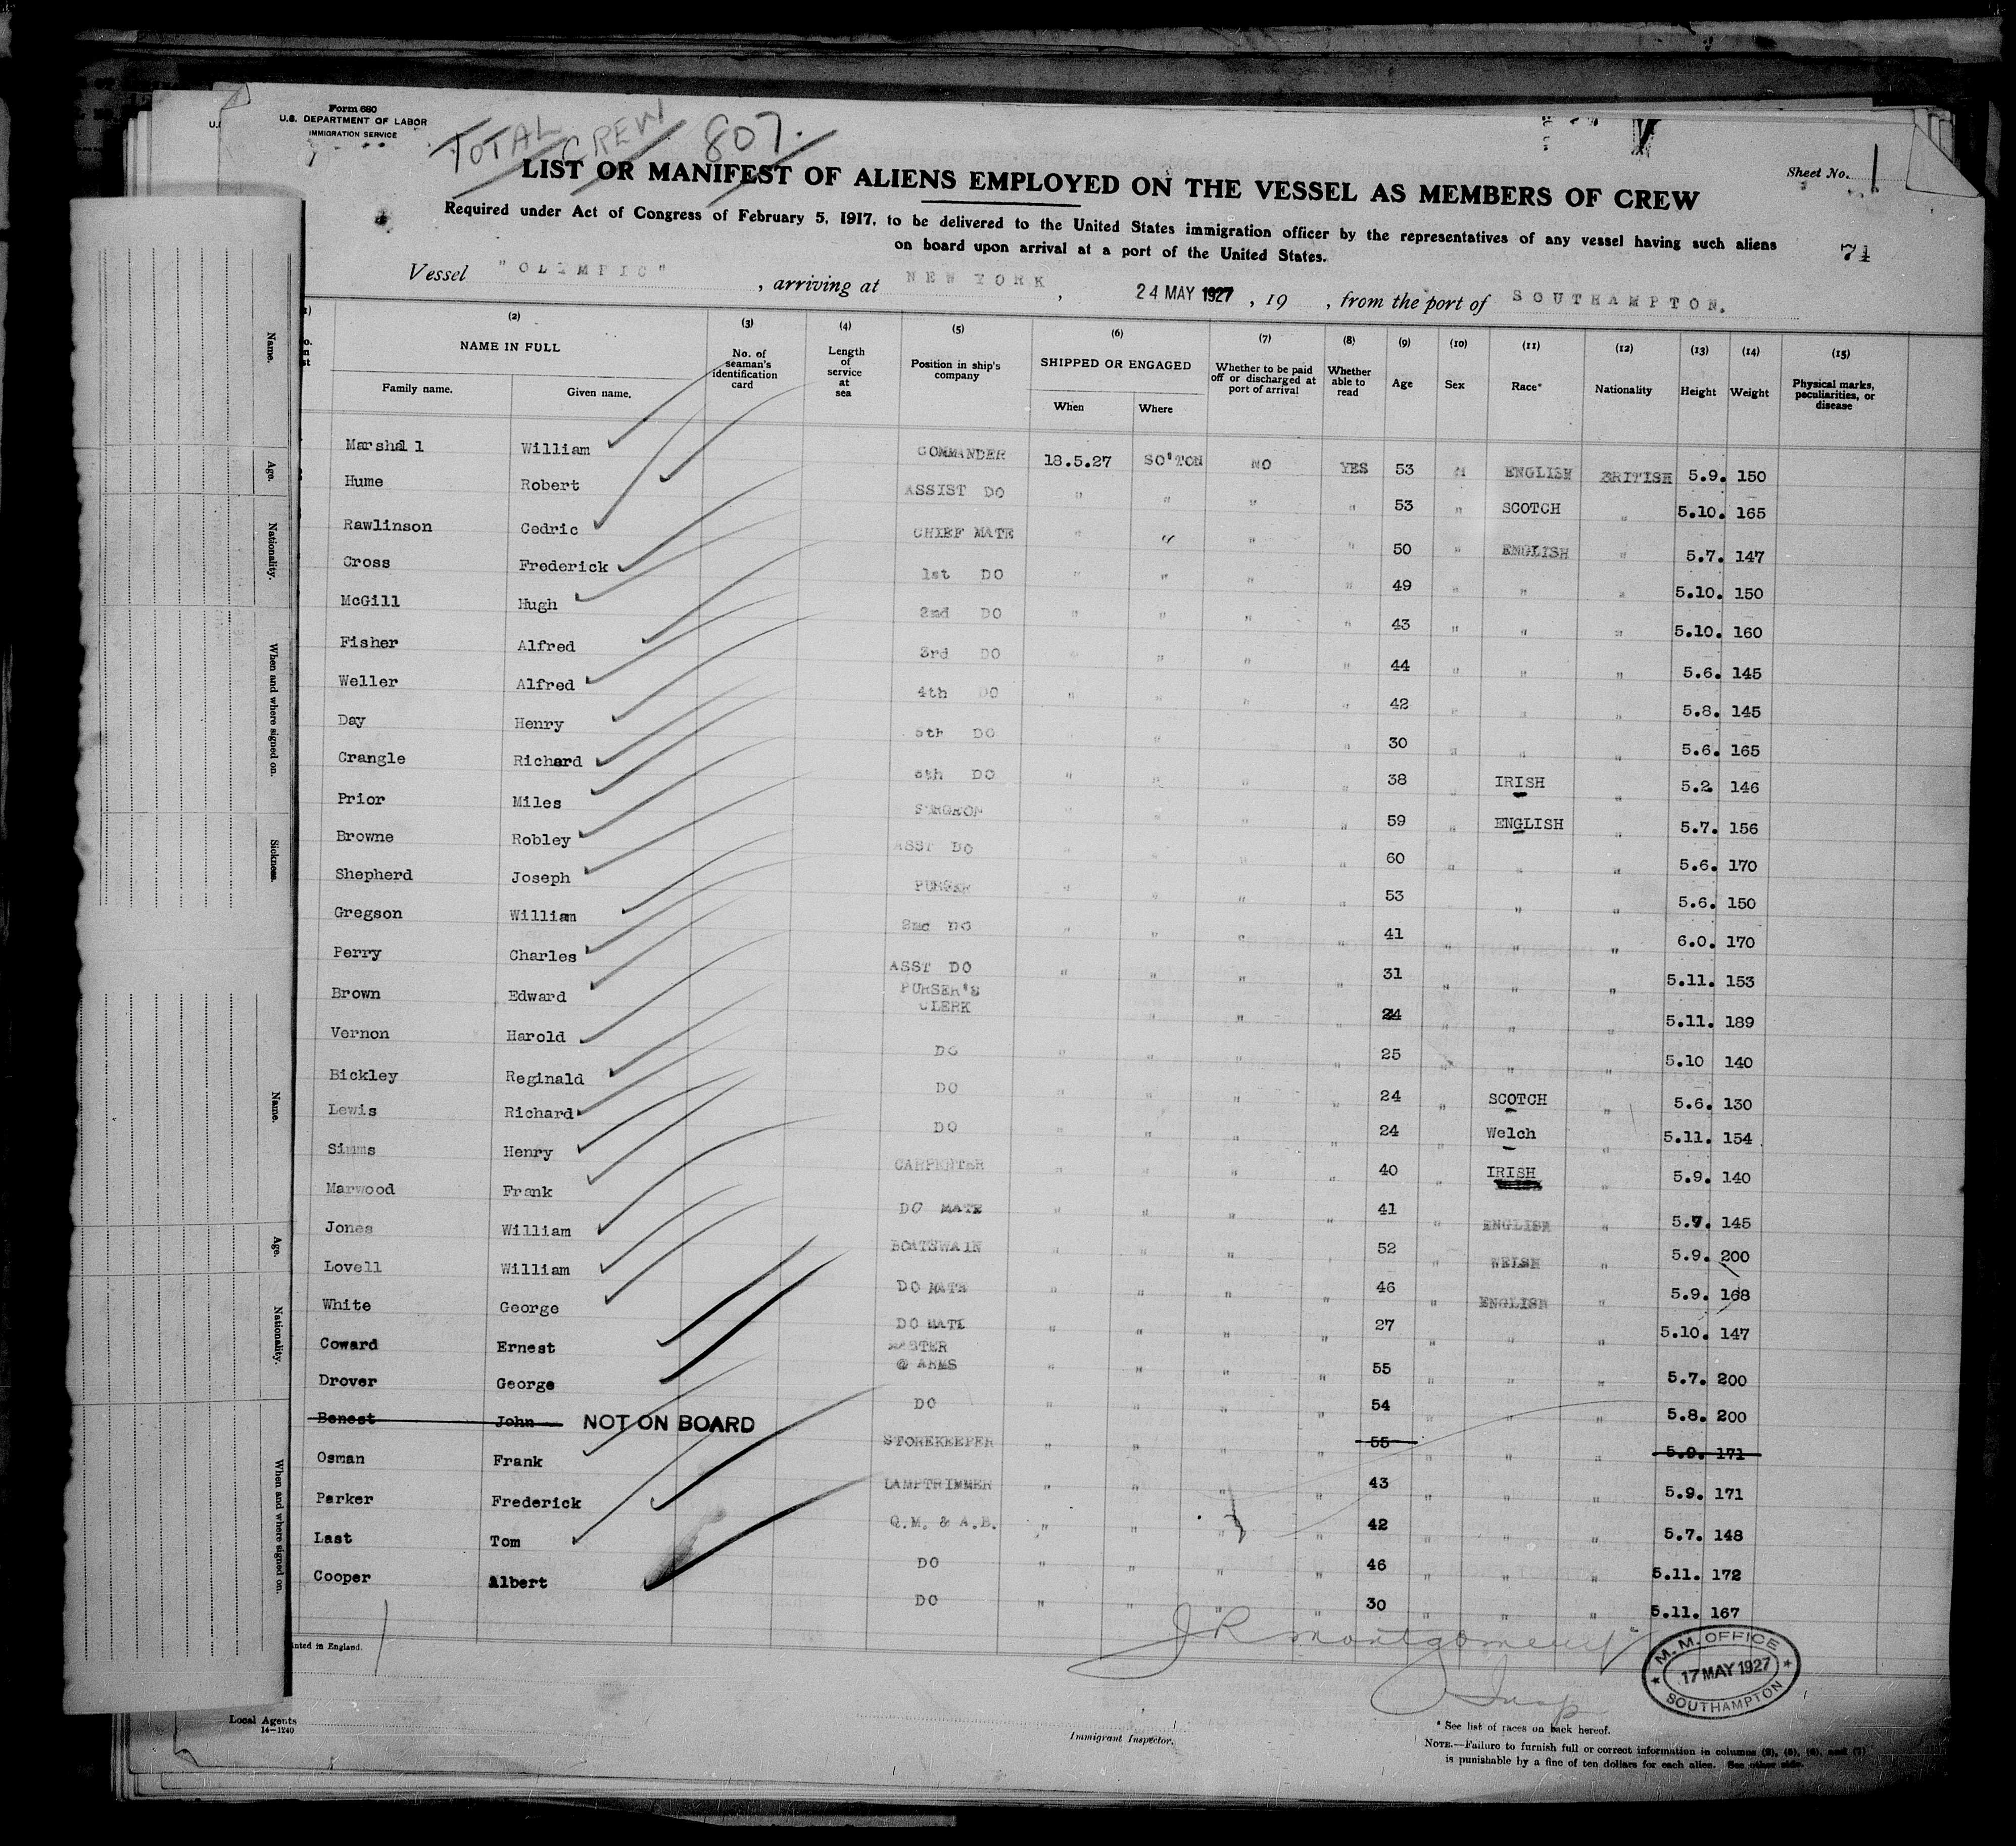 Form 680
U.S. DEPARTMENT OF LABOR
IMMIGRATION SERVICE
TOTAL CREW 807.
Sheet No. 1
LIST OR MANIFEST OF ALIENS EMPLOYED ON THE VESSEL AS MEMBERS OF CREW
Required under Act of Congress of February 5, 1917, to be delivered to the United States immigration officer by the representatives of any vessel having such aliens
on board upon arrival at a port of the United States.
Vessel "OLYMPIC", arriving at NEW YORK, 24 MAY 1927, 19 , from the port of SOUTHAMPTON.
(2) (3) (4) (5) (6) (7) (8) (9) (10) (11) (12) (13) (14) (15)
NAME IN FULL No. of seaman's identification card Length of service at sea Position in ship's company SHIPPED OR ENGAGED Whether to be paid off or discharged at port of arrival Whether able to read Age Sex Race* Nationality Height Weight Physical marks, peculiarities, or disease
Family name. Given name. When Where
Marshall William COMMANDER 18.5.27 SO'TON NO YES 53 M ENGLISH BRITISH 5.9. 150
Hume Robert ASSIST DO " " " " 53 " SCOTCH " 5.10. 165
Rawlinson Cedric CHIEF MATE " " " " 50 " ENGLISH " 5.7. 147
Cross Frederick 1st DO " " " " 49 " " " 5.10. 150
McGill Hugh 2nd DO " " " " 43 " " " 5.10. 160
Fisher Alfred 3rd DO " " " " 44 " " " 5.6. 145
Weller Alfred 4th DO " " " " 42 " " " 5.8. 145
Day Henry 5th DO " " " " 30 " " " 5.6. 165
Crangle Richard 6th DO " " " " 38 " IRISH " 5.2. 146
Prior Miles SURGEON " " " " 59 " ENGLISH " 5.7. 156
Browne Robley ASST DO " " " " 60 " " " 5.6. 170
Shepherd Joseph PURSER " " " " 53 " " 5.6. 150
Gregson William 2nd DO " " " " 41 " " " 6.0. 170
Perry Charles ASST DO " " " " 31 " " " 5.11. 153
Brown Edward PURSER'S CLERK " " " 24 " " " 5.11. 189
Vernon Harold DO " " " " 25 " " " 5.10 140
Bickley Reginald DO " " " " 24 " SCOTCH " 5.6. 130
Lewis Richard DO " " " " 24 " Welch " 5.11. 154
Simms Henry CARPENTER " " " " 40 " IRISH " 5.9. 140
Marwood Frank DO MATE " " " " 41 " ENGLISH " 5.7. 145
Jones William BOATSWAIN " " " " 52 " WELSH " 5.9. 200
Lovell William DO MATE " " " " 46 " ENGLISH " 5.9. 168
White George DO MATE " " " " 27 " " " 5.10. 147
Coward Ernest MASTER @ ARMS " " " " 55 " " " 5.7. 200
Drover George DO " " " " 54 " " " 5.8. 200
Benest John NOT ON BOARD STOREKEEPER " " " " 55 " " " 5.9. 171
Osman Frank LAMPTRIMMER " " " " 43 " " " 5.9. 171
Parker Frederick Q.M. & A.B. " " " " 42 " " " 5.7. 148
Last Tom DO " " " " 46 " " " 5.11. 172
Cooper Albert DO " " " " 30 " " " 5.11. 167
JR Montgomery
Insp
M. M. OFFICE
17 MAY 1927
SOUTHAMPTON
Printed in England.
Local Agents
14—1240
Immigrant Inspector.
* See list of races on back hereof.
NOTE.—Failure to furnish full or correct information in columns (2), (5), (6), and (7)
is punishable by a fine of ten dollars for each alien. See other side.
Name.
Age.
Nationality.
When and where signed on.
Sickness.
Name.
Age.
Nationality.
When and where signed on.